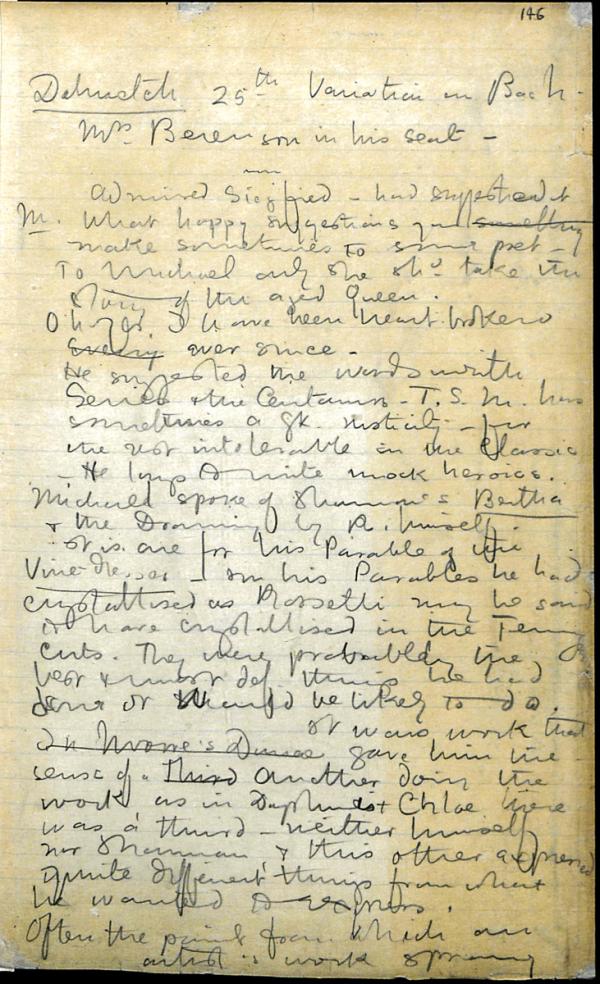 146
Dolmetch 25th Variation in Bach -
Mrs Berenson in his seat -
Admired Siegfried - had suggested it
M. What happy suggestions you
make sometimes to some poet -
To Michael only she shd take the
story of the aged Queen.
I have been heart broken
every ever since -
He suggested the words with
& the Centaurs - T. S. M. has
sometimes a gk. rusticity - for
me not intolerable in the Classic
- He longs to write mock heroics.
Michael spoke of Shannon's Bertha
& the Drawing by R. himself.
it is one for his Parable of the
Vine dresser - in his Parables he had
crystallised as Rossetti may be said
to have crystallised in the Tenny
Cuts. They were probably the
best & most def. things he had
done or should be likely to do.
it was work that
In Moore's Dance gave him the
sense of a Third another doing the
work as in Daphnis & Chloe there
was a third - neither himself
nor Shannon & this other expressed
quite different things from what
he wanted to express.
Often the point from which an
artist's work sprung